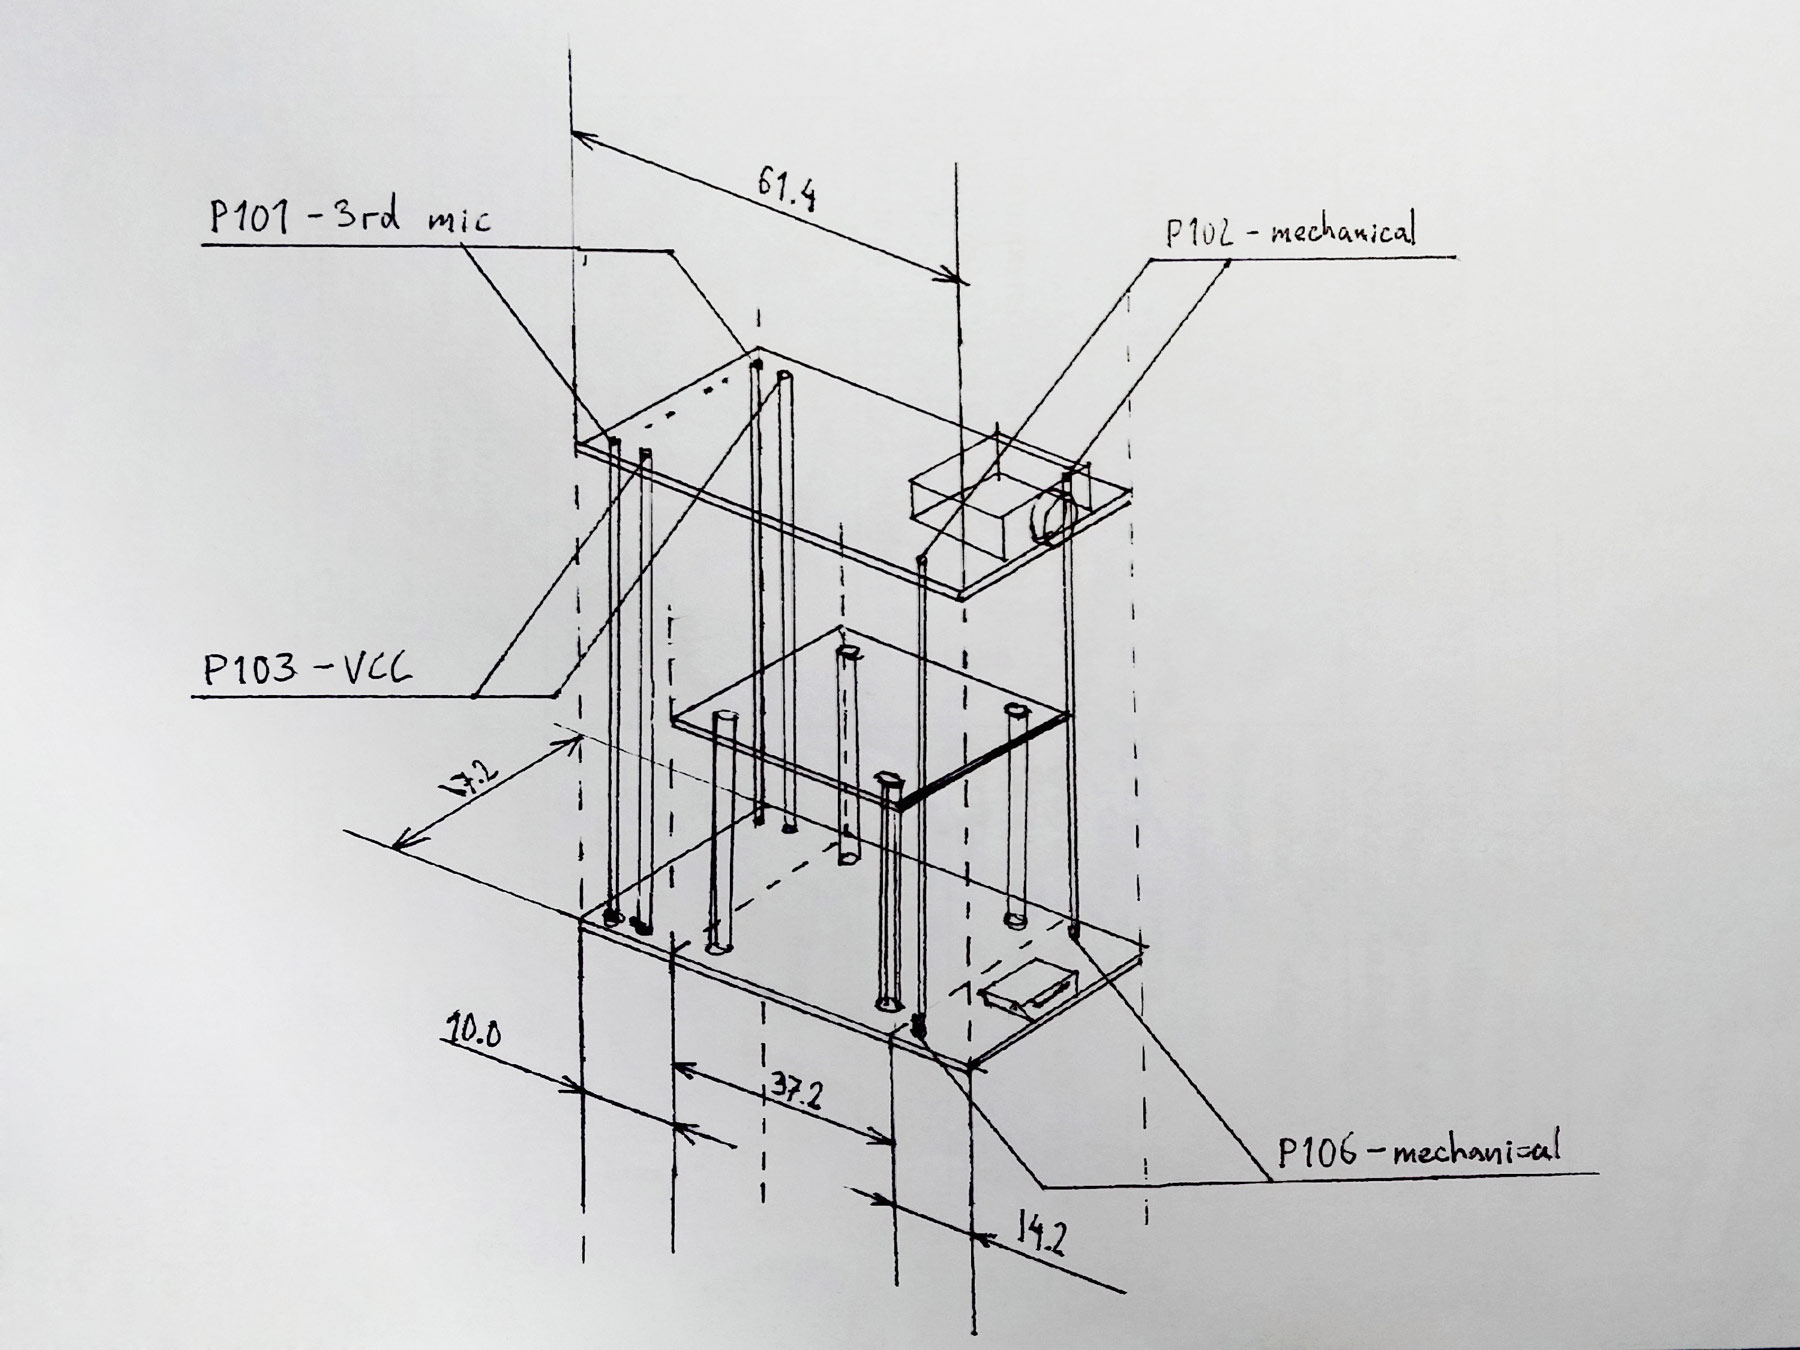 61.4
P101 - 3rd mic
P102 - mechanical
P103 - VCC
17.2
10.0
37.2
P106 - mechanical
14.2